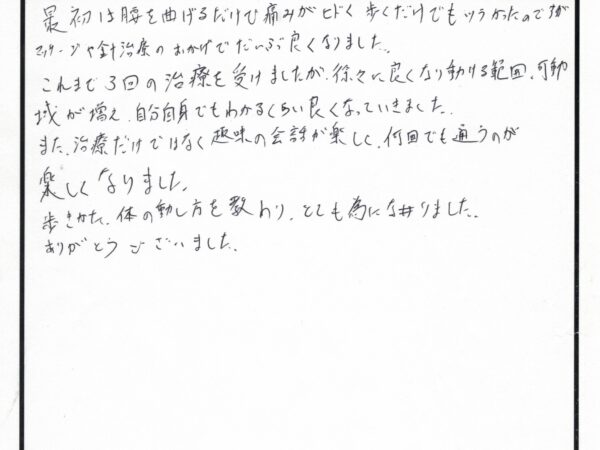 最初は腰を曲げるだけで痛みがヒドく歩くだけでもツラかったのですが
マッサージや針治療のおかげでだいぶ良くなりました。
これまで3回の治療を受けましたが、徐々に良くなり動ける範囲、可動
域が増え、自分自身でもわかるくらい良くなっていきました。
また、治療だけではなく趣味の会話が楽しく、何回でも通うのが
楽しくなりました。
歩きかた、体の動し方を教わり、とても為になりました。
ありがとうございました。